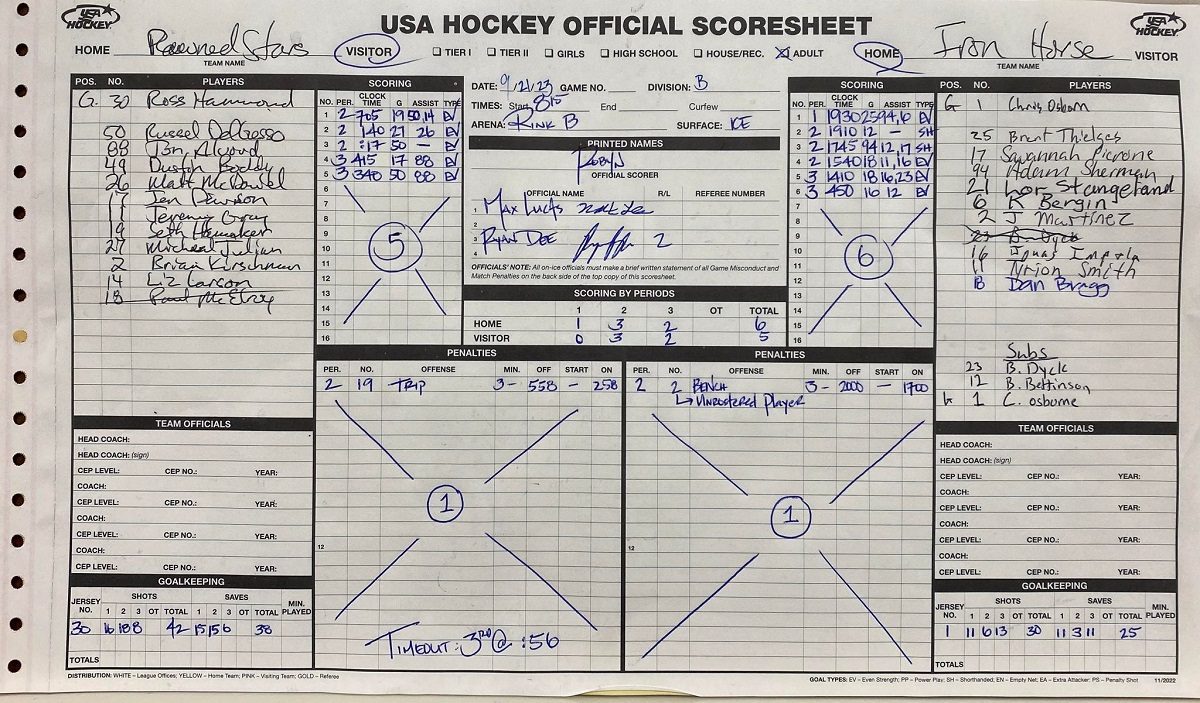 USA HOCKEY
USA HOCKEY OFFICIAL SCORESHEET
USA HOCKEY
HOME VISITOR TIER I TIER II GIRLS HIGH SCHOOL HOUSE/REC. ADULT HOME Iron Horse VISITOR
TEAM NAME TEAM NAME
POS. NO. PLAYERS
G. 30 Ross Hammond
50 Russel DelGrosso
88 Jon Alwood
49 Dustin Boddy
26 Matt McDaniel
17 Jen Pearson
11 Jeremy Gray
19 Seth Hamaker
27 Micheal Julian
2 Brian Kirschman
14 Liz Larson
18 Paul McElroy
SCORING
NO. PER. CLOCK TIME G ASSIST TYPE
1 2 705 19 50,14 EV
2 2 140 21 26 EV
3 2 :17 50 — EV
4 3 415 17 88 EV
5 3 340 50 88 EV
6
7
8
9
10
11
12
13
14
15
16
5
DATE: 9/21/23 GAME NO. DIVISION: B
TIMES: Start 815 End Curfew
ARENA: RINK B SURFACE: ICE
PRINTED NAMES
ROBYN
OFFICIAL SCORER
OFFICIAL NAME R/L REFEREE NUMBER
1 MAX LUCAS
2
3 RYAN DEE 2
4
OFFICIALS' NOTE: All on-ice officials must make a brief written statement of all Game Misconduct and
Match Penalties on the back side of the top copy of this scoresheet.
SCORING BY PERIODS
1 2 3 OT TOTAL
HOME 1 3 2 6
VISITOR 0 3 2 5
SCORING
NO. PER. CLOCK TIME G ASSIST TYPE
1 1 1930 25 94,6 EV
2 2 1910 12 — SH
3 2 1745 94 12,17 SH
4 2 1540 18 11,16 EV
5 3 1410 18 16,23 EV
6 3 450 16 12 EV
7
8
9
10
11
12
13
14
15
16
6
POS. NO. PLAYERS
G 1 Chris Osborn
25 Brent Thielges
17 Savannah Pierone
94 Adam Sherman
21 Lor Stangeland
6 K Bergin
2 J Martinez
23 B. Dyck
16 Jonas Impola
11 Nrion Smith
18 Dan Bragg
Subs
23 B. Dyck
12 B. Bettinson
G 1 C. osborne
PENALTIES
PER. NO. OFFENSE MIN. OFF START ON
2 19 TRIP 3- 558 — 258
12
1
TIMEOUT: 3RD @ :56
PENALTIES
PER. NO. OFFENSE MIN. OFF START ON
2 2 BENCH 3- 2000 — 1700
↳ Unrostered Player
12
1
TEAM OFFICIALS
HEAD COACH:
HEAD COACH: (sign)
CEP LEVEL: CEP NO.: YEAR:
COACH:
CEP LEVEL: CEP NO.: YEAR:
COACH:
CEP LEVEL: CEP NO.: YEAR:
COACH:
CEP LEVEL: CEP NO.: YEAR:
GOALKEEPING
JERSEY NO. SHOTS SAVES MIN. PLAYED
1 2 3 OT TOTAL 1 2 3 OT TOTAL
30 16 18 8 42 15 15 6 38
TOTALS
TEAM OFFICIALS
HEAD COACH:
HEAD COACH: (sign)
CEP LEVEL: CEP NO.: YEAR:
COACH:
CEP LEVEL: CEP NO.: YEAR:
COACH:
CEP LEVEL: CEP NO.: YEAR:
COACH:
CEP LEVEL: CEP NO.: YEAR:
GOALKEEPING
JERSEY NO. SHOTS SAVES MIN. PLAYED
1 2 3 OT TOTAL 1 2 3 OT TOTAL
1 11 6 13 30 11 3 11 25
TOTALS
DISTRIBUTION: WHITE – League Offices; YELLOW – Home Team; PINK – Visiting Team; GOLD – Referee
GOAL TYPES: EV – Even Strength; PP – Power Play; SH – Shorthanded, EN – Empty Net; EA – Extra Attacker; PS – Penalty Shot 11/2022